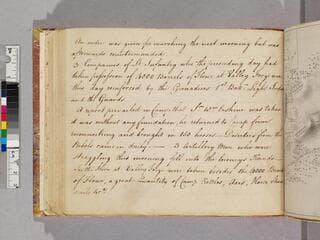 An order was given for marching the next morning but was
afterwards countermanded.
3 Companies of Lt. Infantry who the preceeding day had
taken possession of 4000 Barrels of Flour at Valley Forge were
this day reinforced by the Grenadiers 1st Battn. Light Infan
and the Guards.
A report prevailed in Camp that Sr. Wm. Erskine was taken
it was without any foundation, he returned to camp from
reconnoitring and brought in 150 horses — Deserters from the
Rebels came in daily — 3 Artillery Men who were
straggling this morning fell into the Enemys Hands —
In the Store at Valley Forge were taken besides the 4000 Barrels
of Flour, a great Quantity of Camp Kettles, Axes, Horse Shoes
Nails &ca.